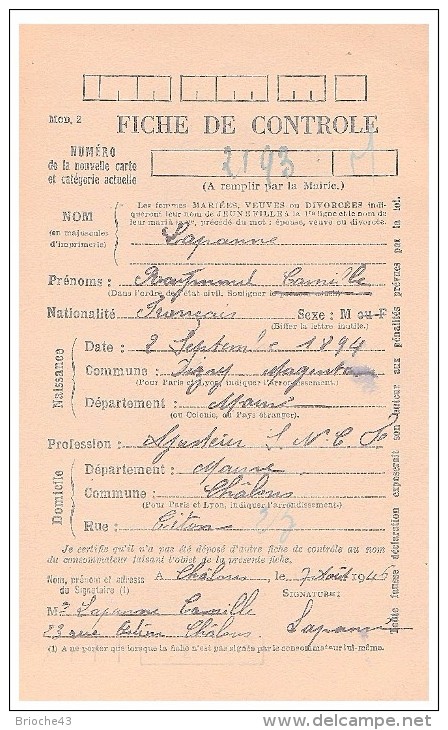 MOD. 2
FICHE DE CONTROLE
NUMÉRO
de la nouvelle carte
et catégorie actuelle
2193 M
(A remplir par la Mairie.)
NOM
(en majuscules
d'imprimerie)
Les femmes MARIÉES, VEUVES ou DIVORCÉES indi-
queront leur nom de JEUNE FILLE à la 1re ligne et le nom de
leur mari à la 2e, précédé du mot : épouse, veuve ou divorcée.
Lapanne
Prénoms : Raymond Camille
(Dans l'ordre de l'état civil. Souligner le prénom usuel.)
Nationalité Français Sexe : M ou F
(Biffer la lettre inutile.)
Naissance
Date : 2 Septembre 1894
Commune : Magenta
(Pour Paris et Lyon, indiquer l'arrondissement.)
Département : Marne
(ou Colonie, ou Pays étranger).
Profession : Ajusteur S.N.C.F.
Domicile
Département : Marne
Commune : Châlons
(Pour Paris et Lyon, indiquer l'arrondissement.)
Rue :
Je certifie qu'il n'a pas été déposé d'autre fiche de contrôle au nom
du consommateur faisant l'objet de la présente fiche.
Nom, prénom et adresse
du Signataire (1)
A Châlons le 7 Août 1946
SIGNATURE :
Mr Lapanne Camille
23 rue Châlons Lapanne
(1) A ne porter que lorsque la fiche n'est pas signée par le consommateur lui-même.
Toute fausse déclaration exposerait son auteur aux pénalités prévues par la loi.
Brioche43
www.delcampe.net